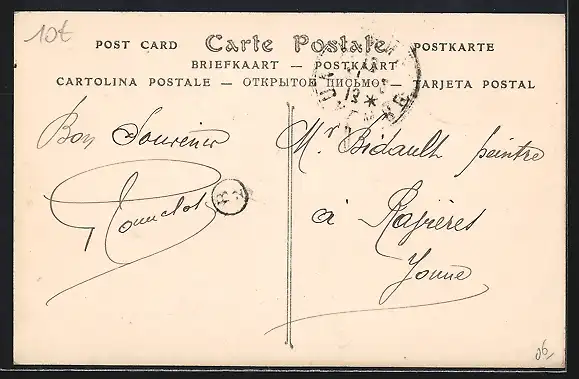 10t
POST CARD Carte Postale POSTKARTE
BRIEFKAART — POSTKAART
CARTOLINA POSTALE — ОТКРЫТОЕ ПИСЬМО — TARJETA POSTAL
Bon Souvenir
Mr Bidault peintre
à Ravières
Yonne
06,